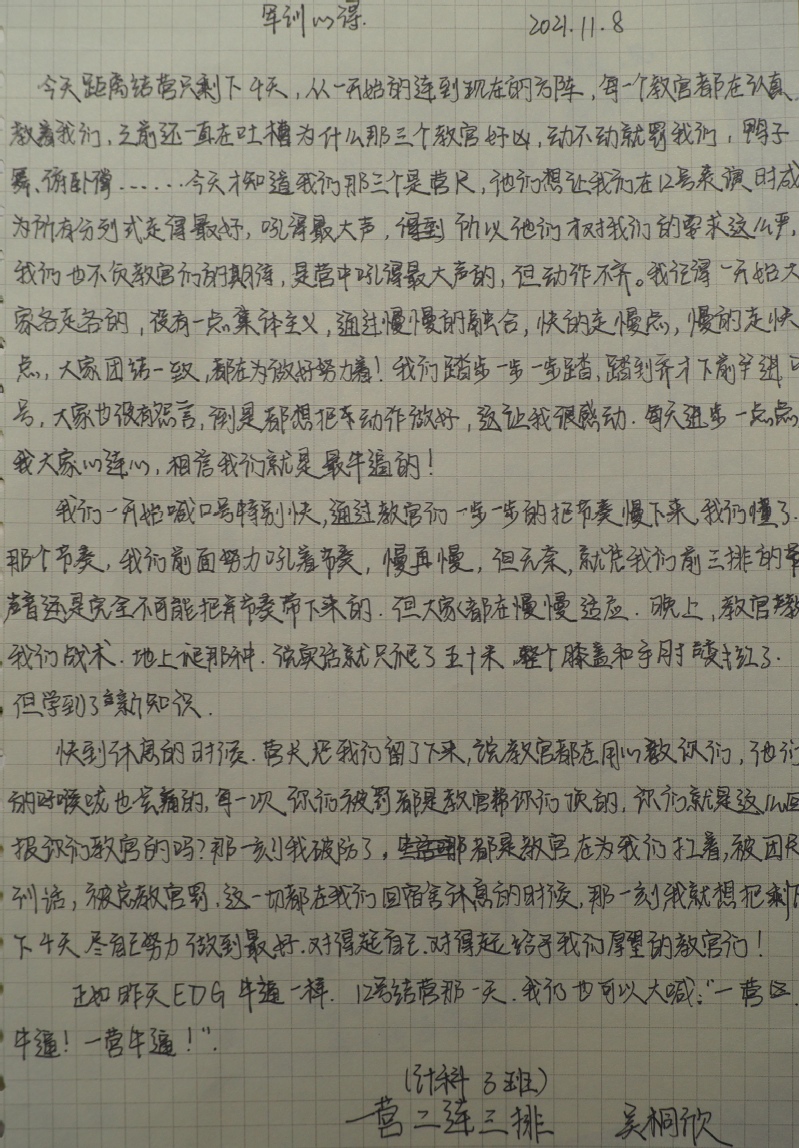 军训心得. 2021.11.8
今天距离结营只剩下4天，从一开始的连到现在的方阵，每一个教官都在认真
教着我们，之前还一直在吐槽为什么那三个教官好凶，动不动就罚我们，鸭子
舞、俯卧撑……今天才知道我们那三个是营长，他们想让我们在12号表演时成
为所有分列式走得最好，吼得最大声，得到 所以他们才对我们的要求这么严，
我们也不负教官们的期待，是营中吼得最大声的，但动作不齐。我记得一开始大
家各走各的，没有一点集体主义，通过慢慢的融合，快的走慢点，慢的走快
点，大家团结一致，都在为做好努力着！我们踏步一步一步踏，踏到齐才下前半进口
号，大家也没有怨言，倒是都想把车动作做好，这让我很感动.每天进步一点点
我大家心连心，相信我们就是最牛逼的！
我们一开始喊口号特别快，通过教官们一步一步的把节奏慢下来，我们懂了.
那个节奏，我们前面努力吼着节奏，慢再慢，但无奈，就凭我们前三排的
声音还是完全不可能把节奏带下来的.但大家都在慢慢适应.晚上，教官教
我们战术.地上爬那种.说实话就只爬了五十米 整个膝盖和手肘 红了.
但学到了新知识.
快到休息的时候.营长把我们留了下来，说教官都在用心教你们，他们
的好喉咙也会痛的，每一次你们被罚都是教官帮你们顶的，你们就是这么回
报你们教官的吗？那一刻我破防了， 都是教官在为我们扛着，被团长
训话，被总教官罚，这一切都在我们回宿舍休息的时候，那一刻我就想把剩下
下4天 尽自己努力做到最好.对得起自己.对得起给予我们厚望的教官们！
正如昨天EDG牛逼一样. 12号结营那一天.我们也可以大喊：“一营
牛逼！一营牛逼！”.
（计科3班）
一营二连三排 吴桐欣